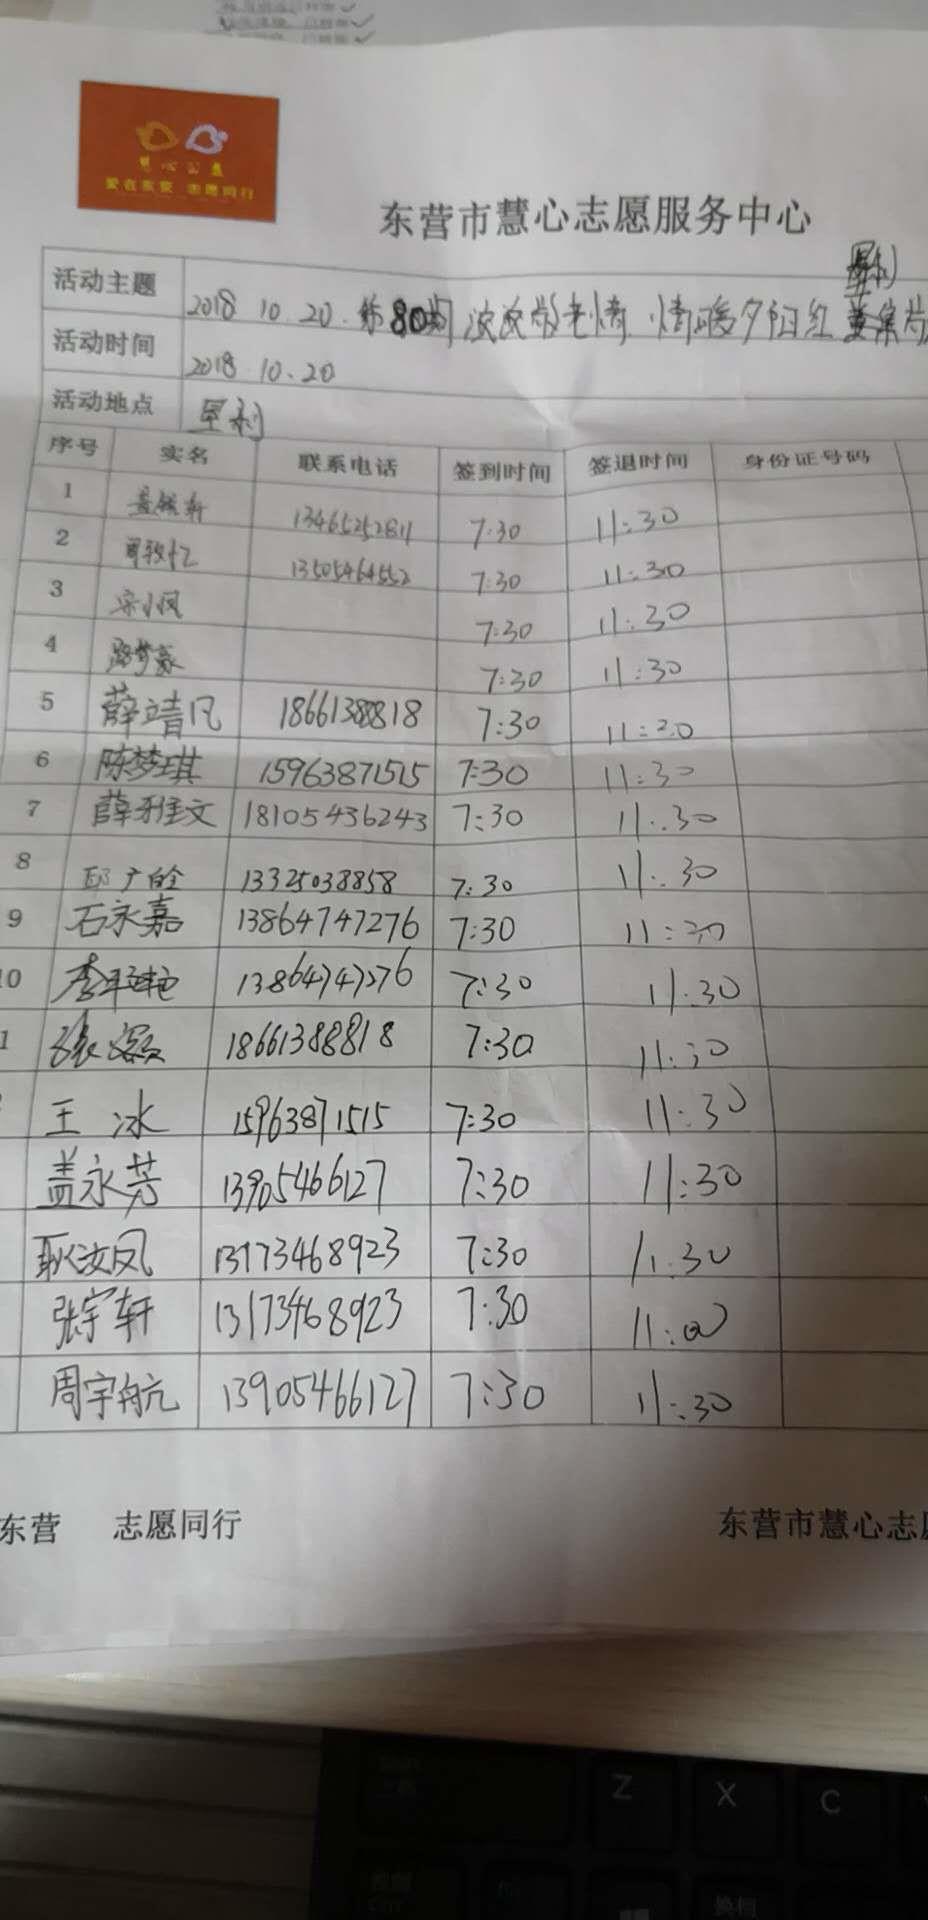 慧心公益
爱在东营 志愿同行
东营市慧心志愿服务中心
垦利
活动主题 2018.10.20.第80期 浓浓敬老情 情暖夕阳红
活动时间 2018.10.20
活动地点 垦利
序号 实名 联系电话 签到时间 签退时间 身份证号码
1 13465252811 7:30 11:30
2 13505464552 7:30 11:30
3 宋小凤 7:30 11:30
4 路梦豪 7:30 11:30
5 薛靖凡 18661388818 7:30 11:30
6 陈梦琪 15963871515 7:30 11:30
7 薛雅文 18105436243 7:30 11:30
8 邱广的全 13325038858 7:30 11:30
9 石永嘉 13864747276 7:30 11:30
10 李艳艳 13864747276 7:30 11:30
1 张 18661388818 7:30 11:30
王冰 15963871515 7:30 11:30
盖永芳 13905466127 7:30 11:30
耿汝凤 13173468923 7:30 11:30
张宇轩 13173468923 7:30 11:00
周宇航 13905466127 7:30 11:30
东营 志愿同行 东营市慧心志愿
Z X C
Ctrl
换档